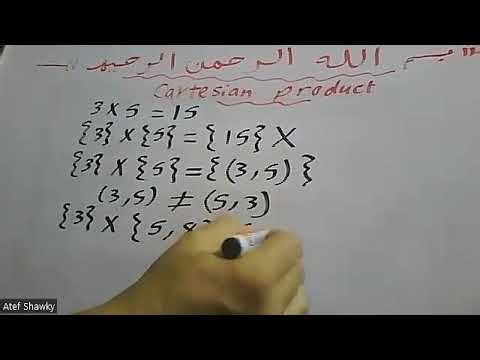 بسم الله الرحمن الرحيم
Cartesian product
3 X 5 = 15
{3} X {5} = {15} X
{3} X {5} = {(3,5)}
(3,5) ≠ (5,3)
{3} X {5,8}
Atef Shawky